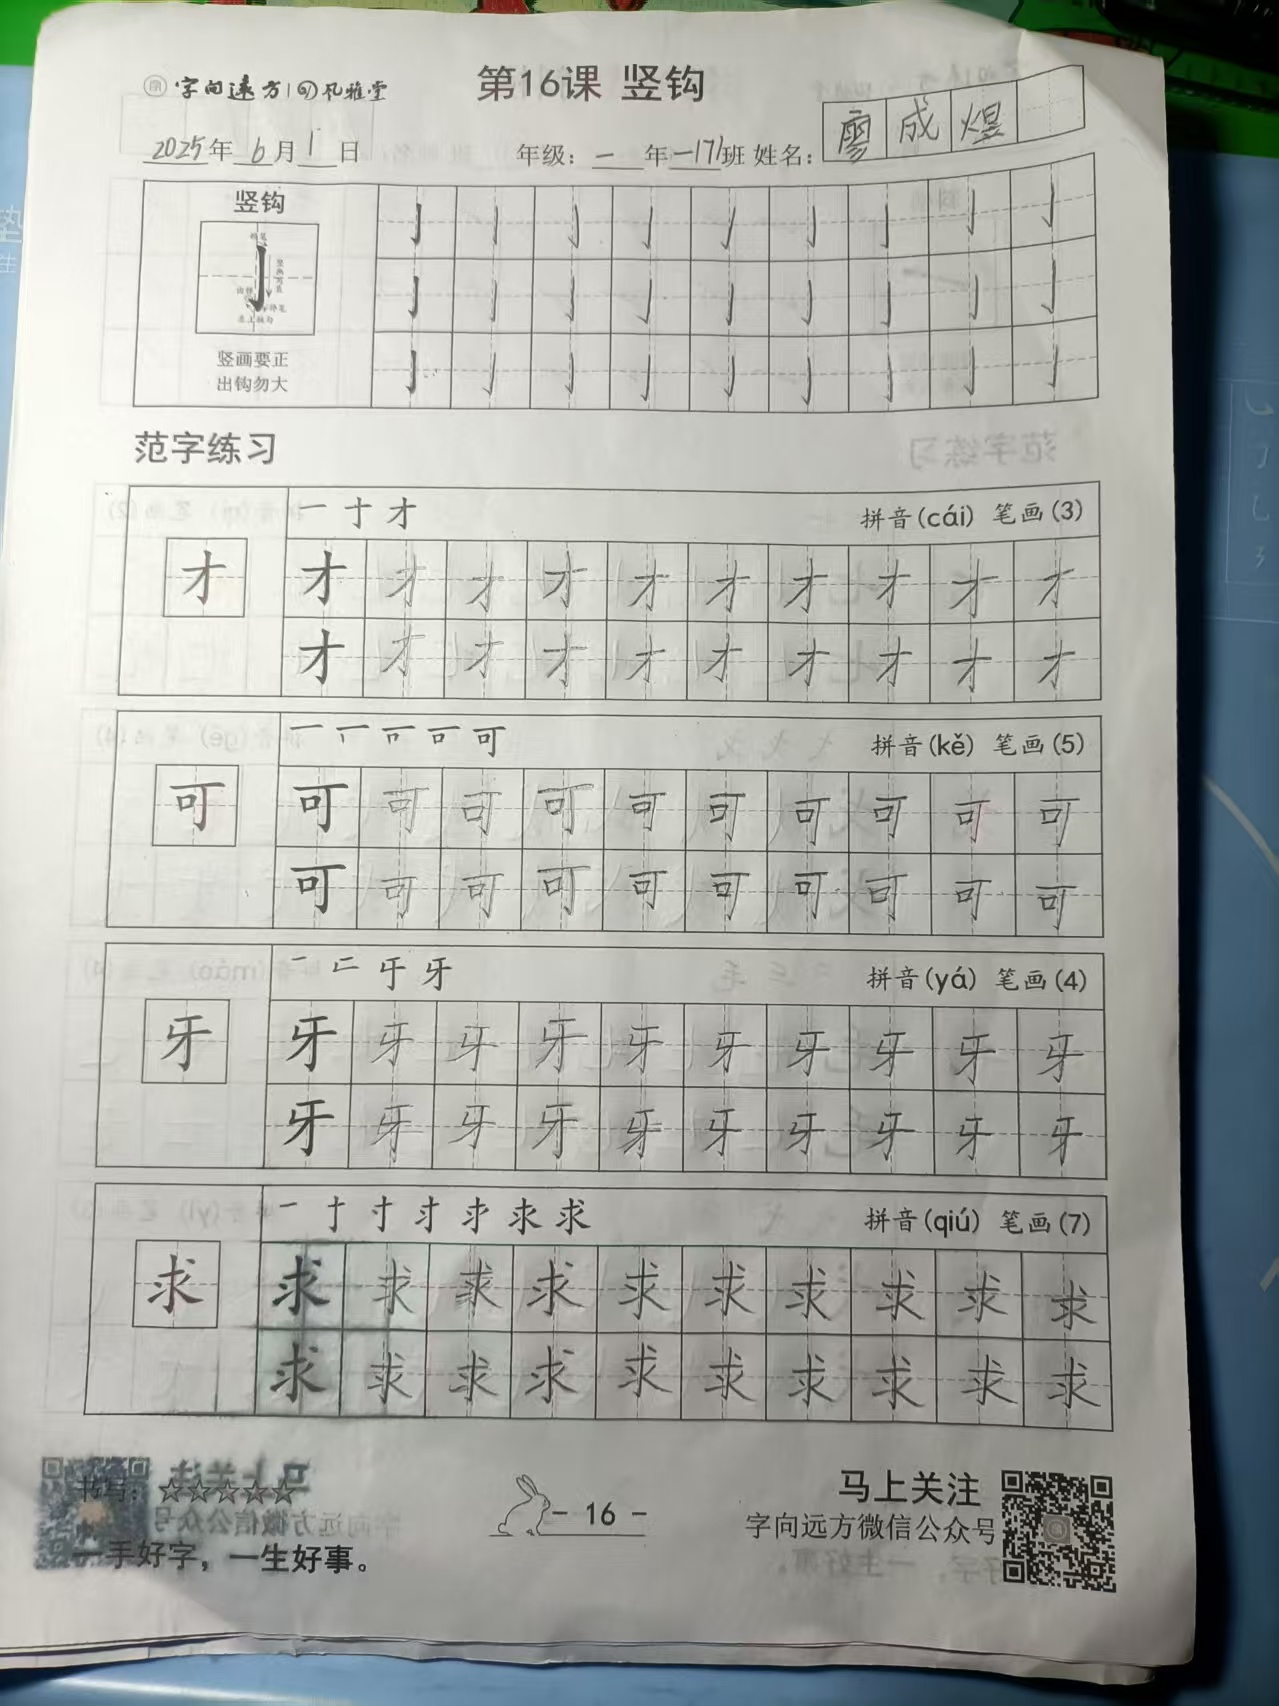 字向远方 风雅堂
第16课 竖钩
2025年6月1日 年级:一年一17班 姓名:廖成煜
竖钩
竖画要正
出钩勿大
范字练习
一 十 才 拼音(cái) 笔画(3)
才 才 才 才 才 才 才 才 才 才 才
才 才 才 才 才 才 才 才 才 才
拼音(kě) 笔画(5)
可 可 可 可 可 可 可 可 可 可 可
可 可 可 可 可 可 可 可 可 可
牙 拼音(yá) 笔画(4)
牙 牙 牙 牙 牙 牙 牙 牙 牙 牙 牙
牙 牙 牙 牙 牙 牙 牙 牙 牙 牙
求 拼音(qiú) 笔画(7)
求 求 求 求 求 求 求 求 求 求 求
求 求 求 求 求 求 求 求 求 求
书写:☆☆☆☆☆
一手好字,一生好事。
- 16 -
马上关注
字向远方微信公众号